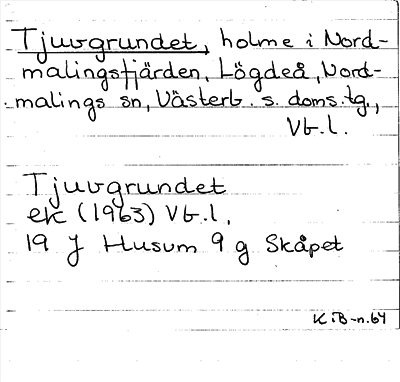 Tjuvgrundet, holme i Nord-
malingsfjärden, Lögdeå, Nord-
malings sn, Västerb. s. doms.tg.,
Vb.l.
Tjuvgrundet
ek (1963) Vb.l,
19 J Husum 9 g Skåpet
KiB-n.64